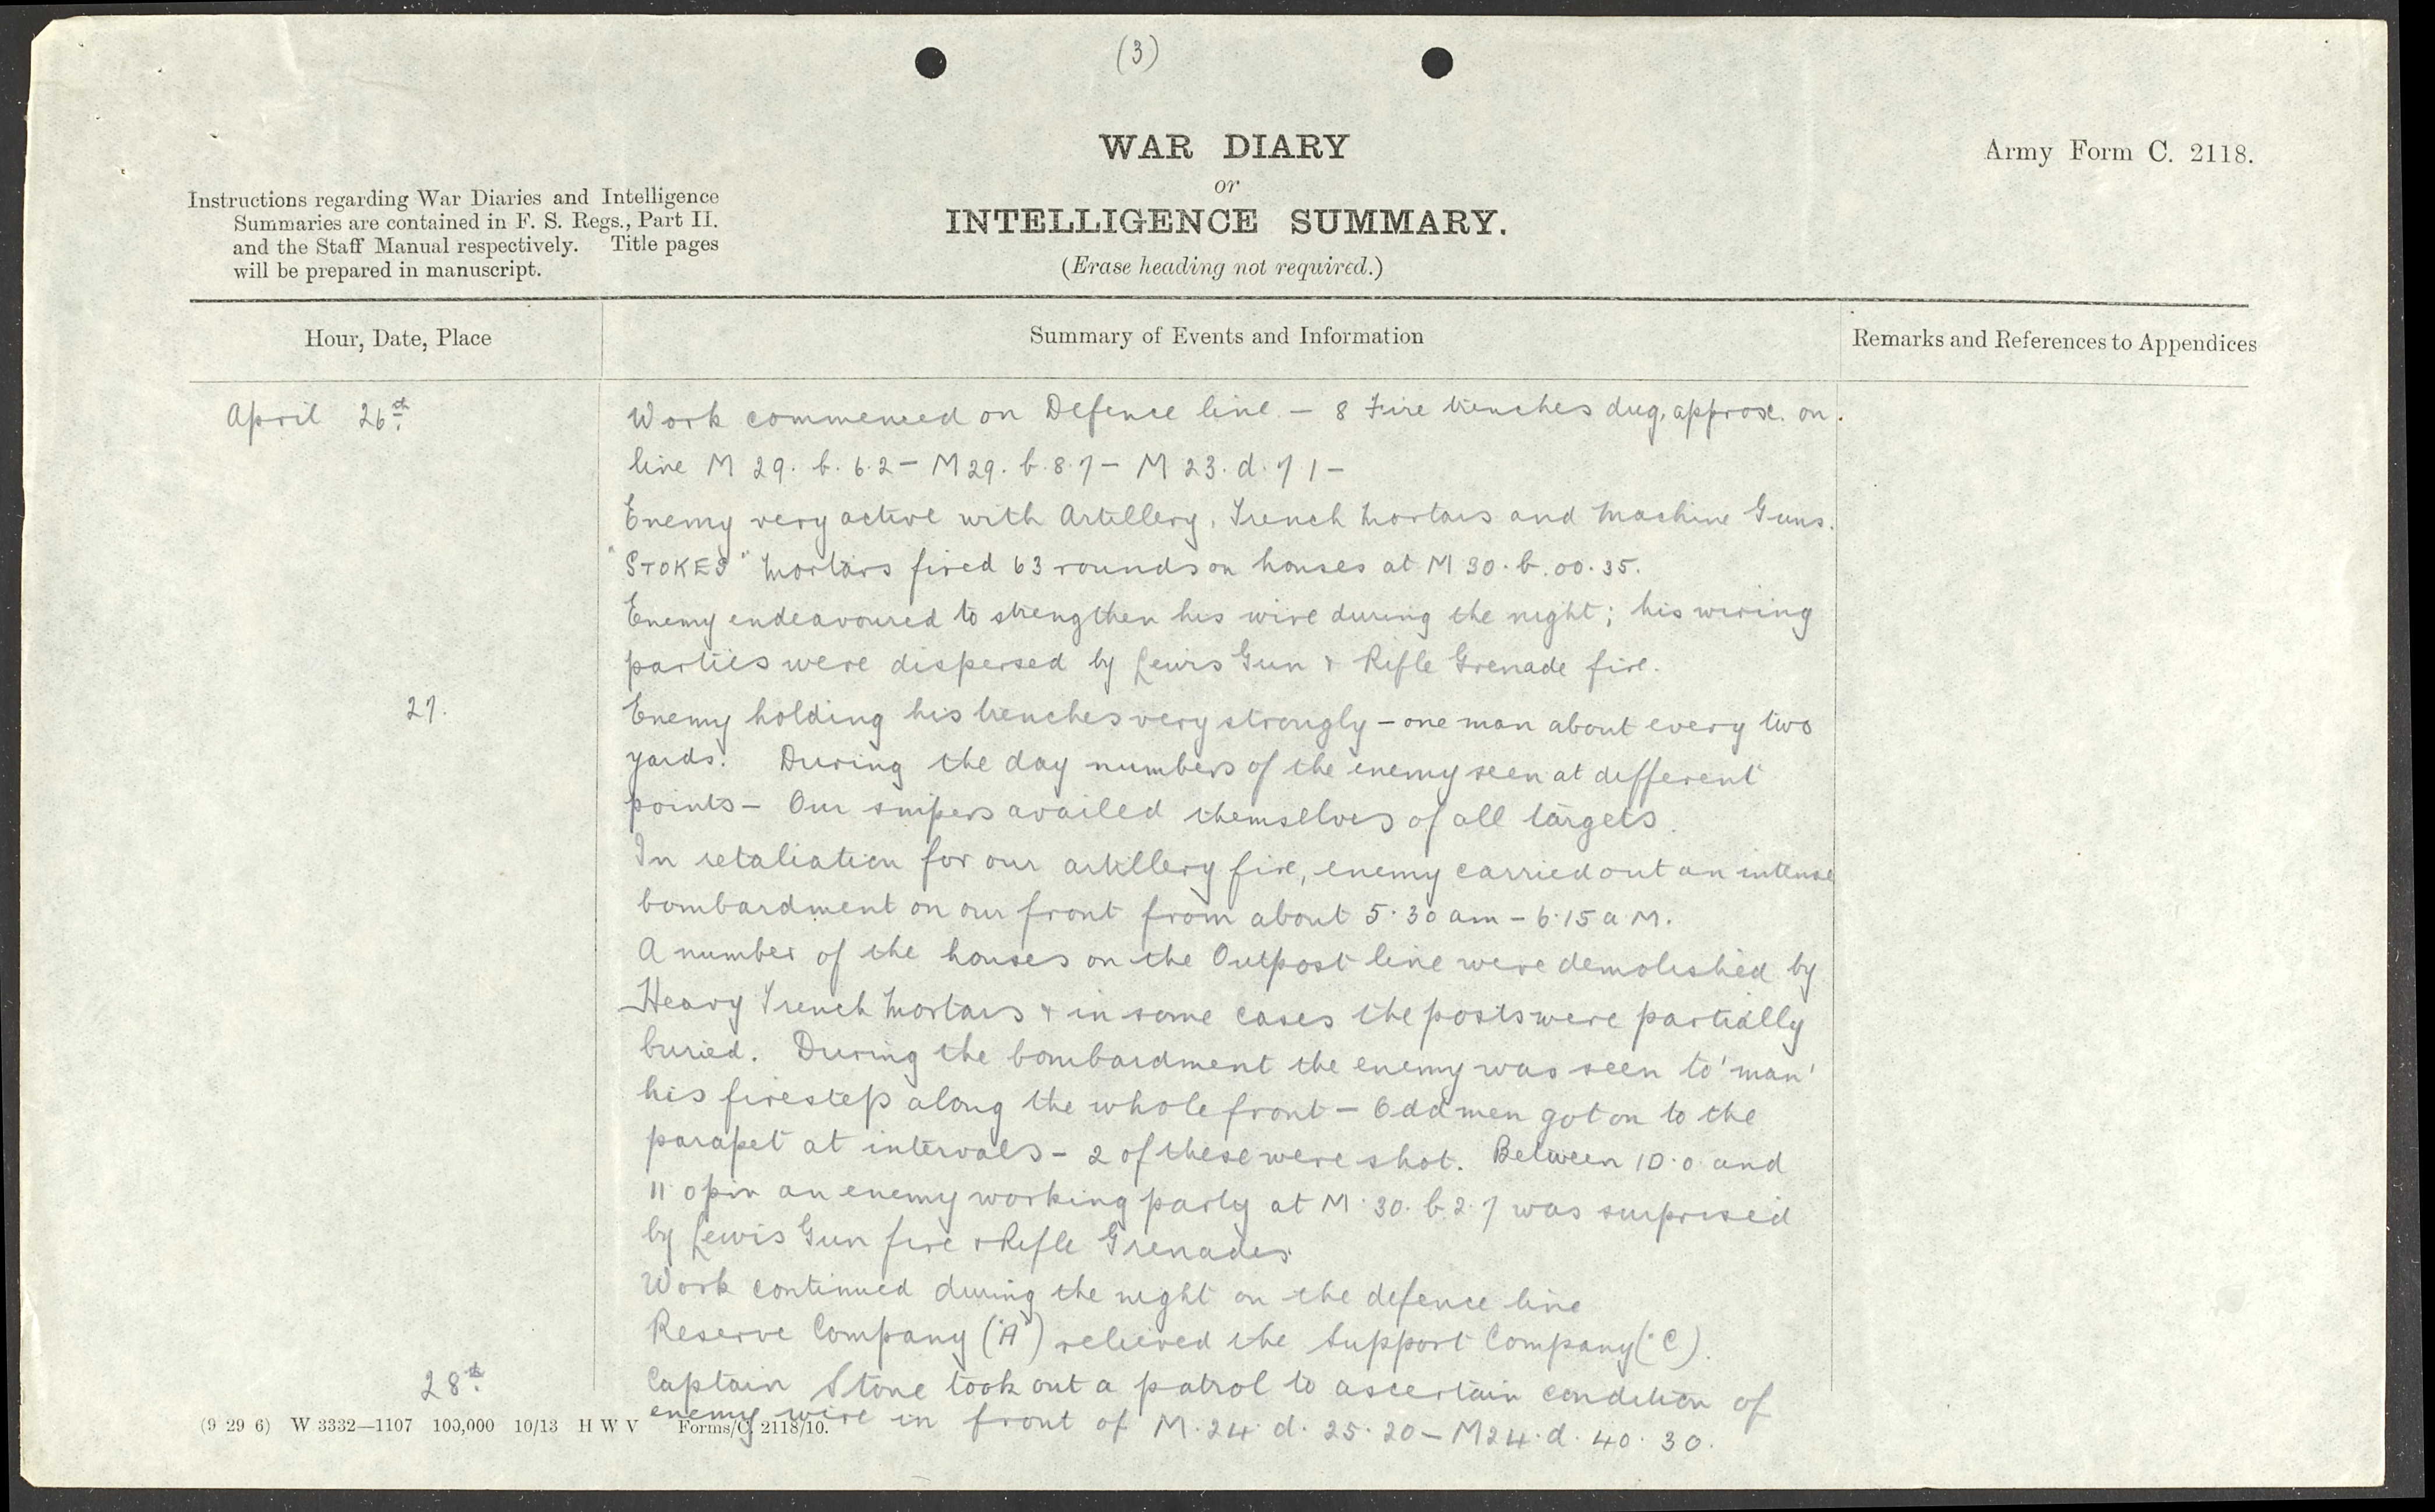 (3)
WAR DIARY
or
INTELLIGENCE SUMMARY.
(Erase heading not required.)
Army Form C. 2118.
Instructions regarding War Diaries and Intelligence
Summaries are contained in F. S. Regs., Part II.
and the Staff Manual respectively. Title pages
will be prepared in manuscript.
Hour, Date, Place
Summary of Events and Information
Remarks and References to Appendices
April 26th.
Work commenced on Defence line — 8 Fire trenches dug, approx. on
line M 29. b. 6.2 — M29. b. 8.7 — M 23. d. 7 1 —
Enemy very active with Artillery, Trench Mortars and Machine Guns.
"STOKES" Mortars fired 63 rounds on houses at M 30. b. 00. 35.
Enemy endeavoured to strengthen his wire during the night; his wiring
parties were dispersed by Lewis Gun & Rifle Grenade fire.
27.
Enemy holding his trenches very strongly — one man about every two
yards. During the day numbers of the enemy seen at different
points — Our snipers availed themselves of all targets.
In retaliation for our artillery fire, enemy carried out an intense
bombardment on our front from about 5.30 am — 6.15 a.m.
A number of the houses on the Outpost line were demolished by
Heavy Trench Mortars & in some cases the posts were partially
buried. During the bombardment the enemy was seen to 'man'
his firestep along the whole front — Odd men got on to the
parapet at intervals — 2 of these were shot. Between 10.0 and
11.0 pm an enemy working party at M. 30. b. 2. 7 was surprised
by Lewis Gun fire & Rifle Grenades
Work continued during the night on the defence line
Reserve Company ("A") relieved the Support Company ("C).
28th.
Captain Stone took out a patrol to ascertain condition of
enemy wire in front of M. 24. d. 25. 20 — M24. d. 40. 30.
(9 29 6) W 3332—1107 100,000 10/13 H W V Forms/C. 2118/10.